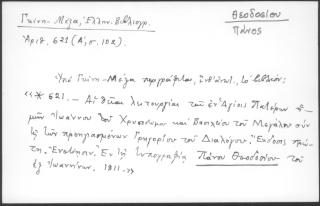 Γκίνη - Μέξα, Ἑλλην. Βιβλιογρ.
Ἀριθ. 621 (Α΄, σ. 102).
Θεοδοσίου
Πάνος
Ὑπὸ Γκίνη - Μέξα περιγράφεται, τὸ βιβλίον:
«* 621. — Αἱ θεῖαι λειτουργίαι τῶν ἐν Ἁγίοις Πατέρων ἡ-
μῶν Ἰωάννου τοῦ Χρυσοστόμου καὶ Βασιλείου τοῦ Μεγάλου σὺν
τῇ τῶν προηγιασμένων Γρηγορίου τοῦ Διαλόγου. Ἔκδοσις πρώ-
τη. Ἑνετίησιν. Ἐν τῇ Τυπογραφίᾳ Πάνου Θεοδοσίου τοῦ
ἐξ Ἰωαννίνων. 1811.»